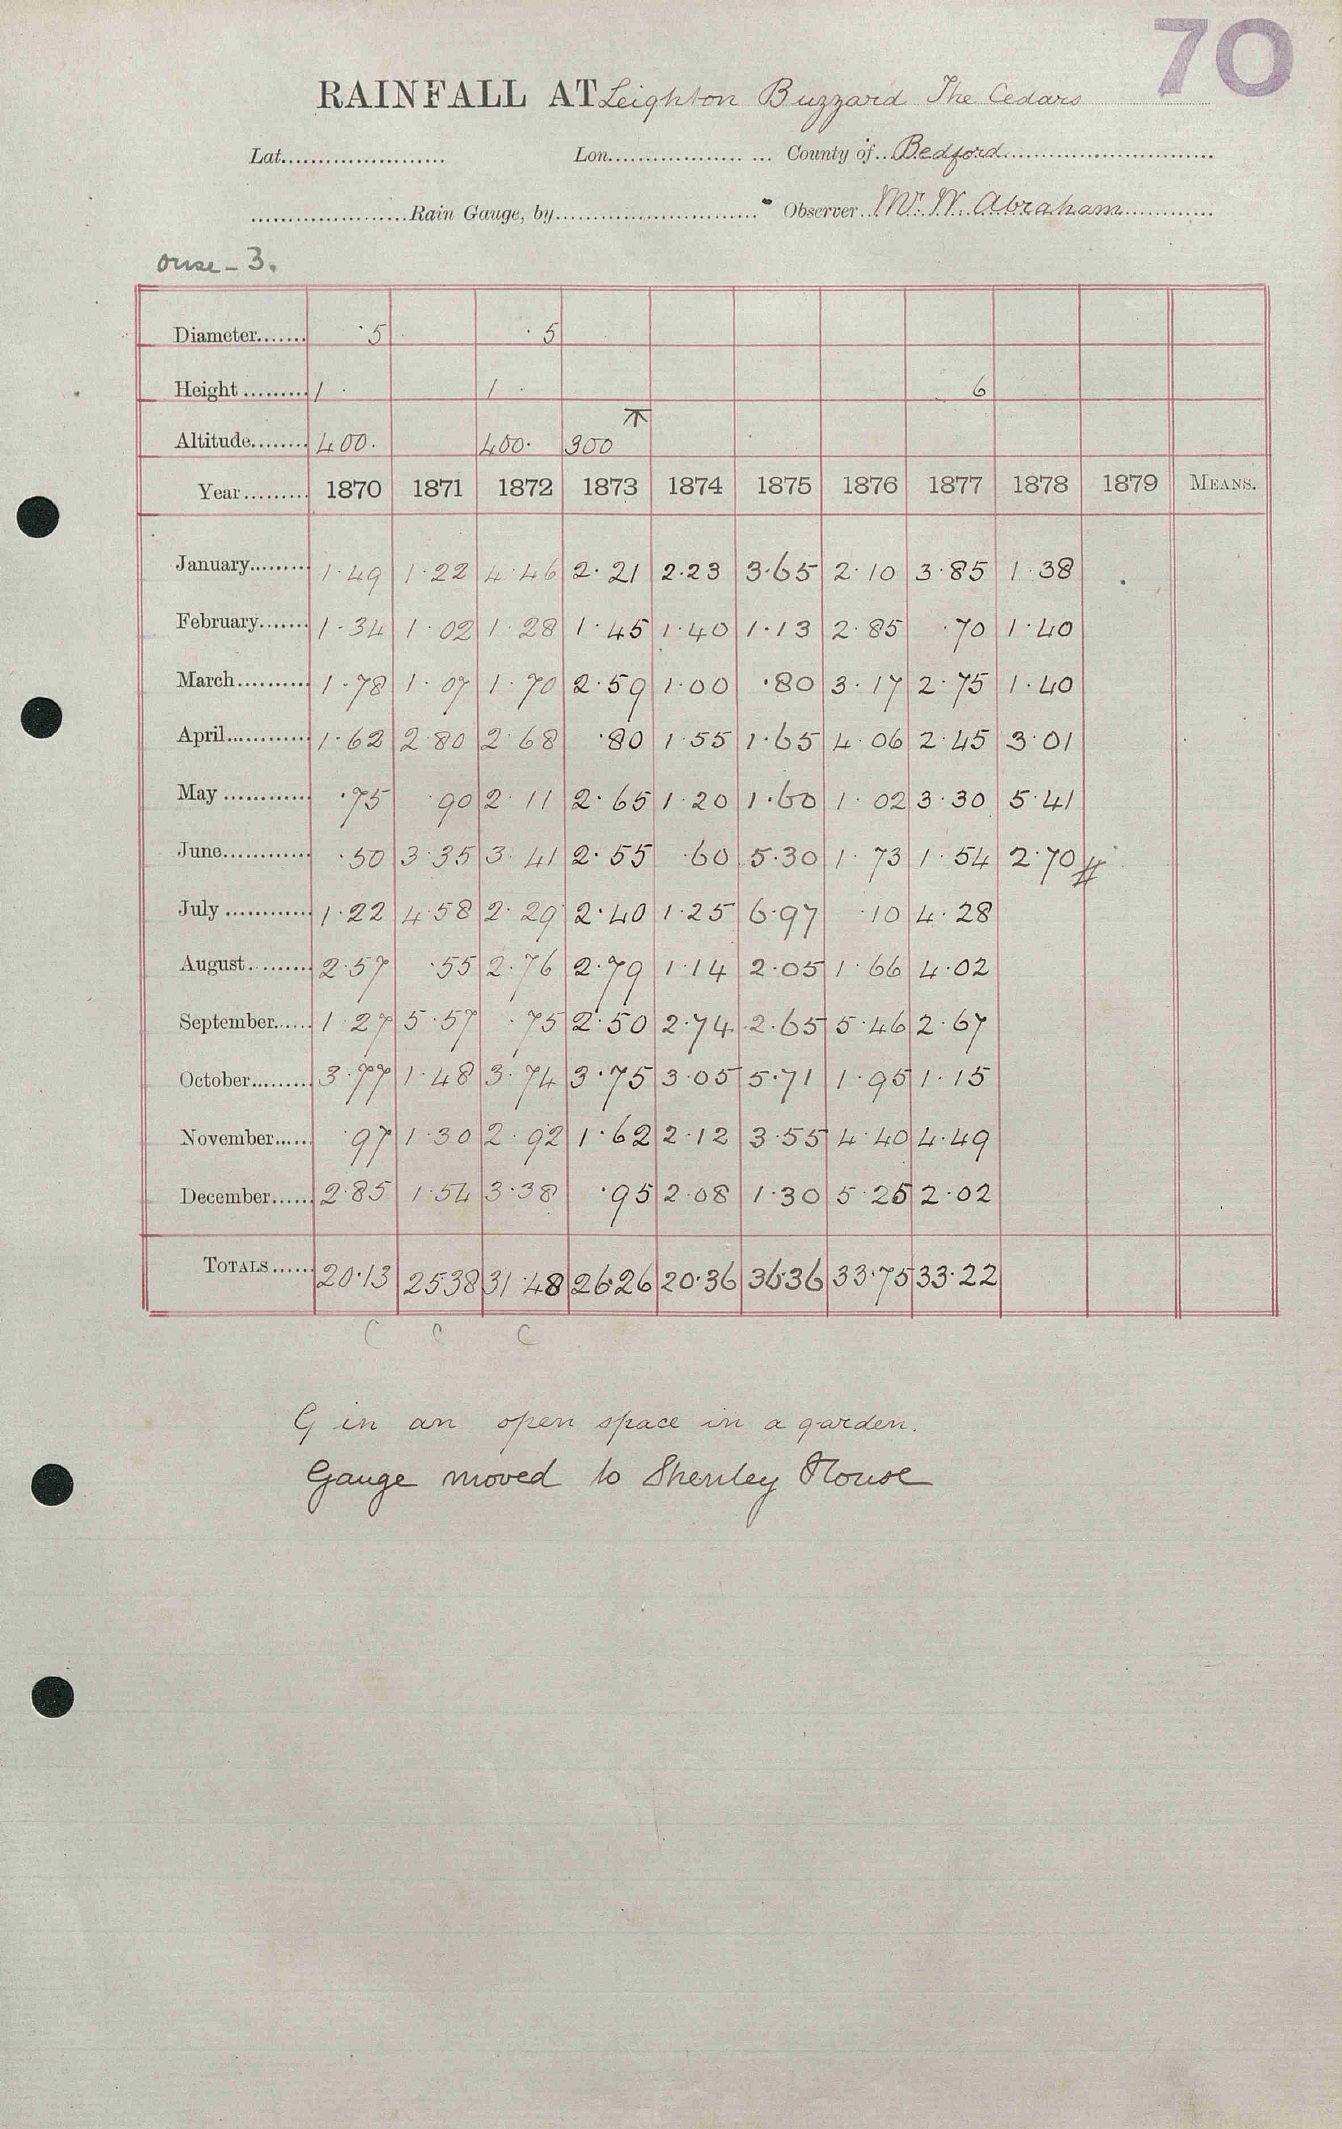 70
RAINFALL AT Leighton Buzzard The Cedars
Lat. Lon. County of Bedford
Rain Gauge, by Observer Mr. W. Abraham
Ouse - 3.
Diameter 5 5
Height 1 1 6
Altitude 400 400 300
Year 1870 1871 1872 1873 1874 1875 1876 1877 1878 1879 MEANS.
January 1.49 1.22 4.46 2.21 2.23 3.65 2.10 3.85 1.38
February 1.34 1.02 1.28 1.45 1.40 1.13 2.85 .70 1.40
March 1.78 1.07 1.70 2.59 1.00 .80 3.17 2.75 1.40
April 1.62 2.80 2.68 .80 1.55 1.65 4.06 2.45 3.01
May .75 .90 2.11 2.65 1.20 1.60 1.02 3.30 5.41
June .50 3.35 3.41 2.55 .60 5.30 1.73 1.54 2.70 #
July 1.22 4.58 2.29 2.40 1.25 6.97 .10 4.28
August 2.57 .55 2.76 2.79 1.14 2.05 1.66 4.02
September 1.27 5.57 .75 2.50 2.74 2.65 5.46 2.67
October 3.77 1.48 3.74 3.75 3.05 5.71 1.95 1.15
November .97 1.30 2.92 1.62 2.12 3.55 4.40 4.49
December 2.85 1.54 3.38 .95 2.08 1.30 5.25 2.02
TOTALS 20.13 25.38 31.48 26.26 20.36 36.36 33.75 33.22
C C C
G in an open space in a garden.
Gauge moved to Shenley House